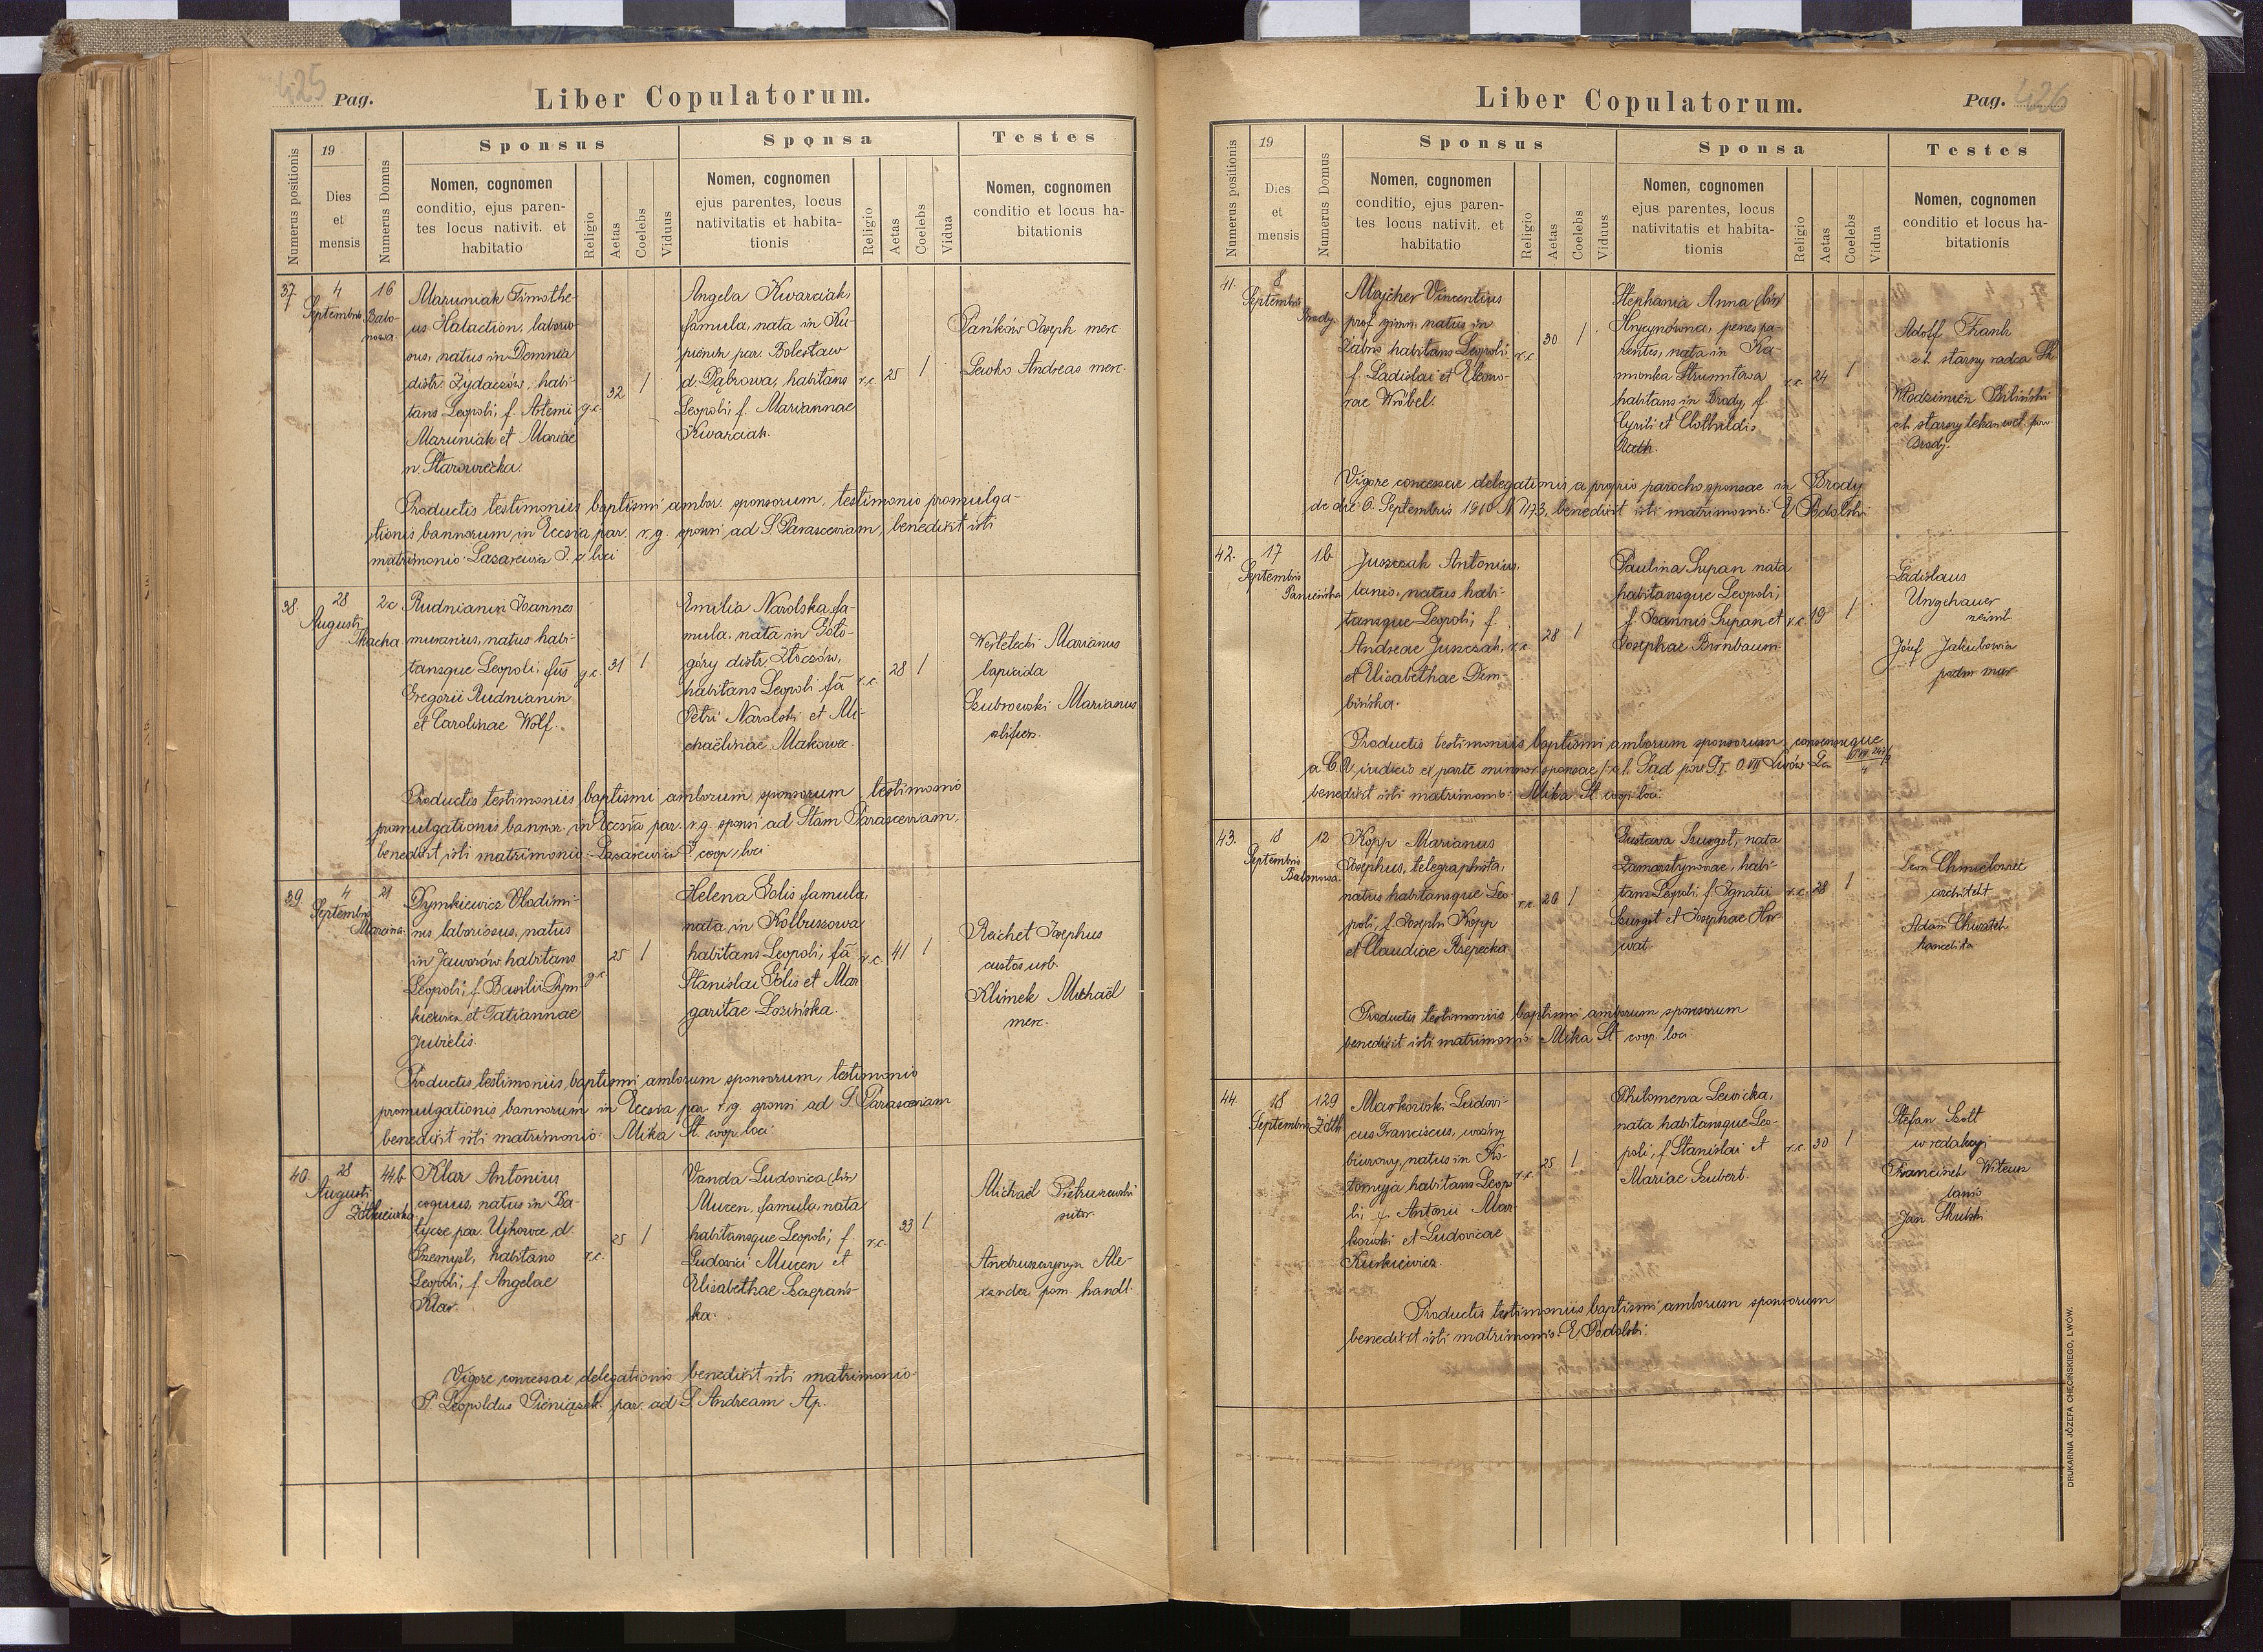 425 Pag.
Liber Copulatorum.
Numerus positionis
19
Dies
et
mensis
Numerus Domus
Sponsus
Nomen, cognomen
conditio, ejus paren-
tes locus nativit. et
habitatio
Religio
Aetas
Coelebs
Viduus
Sponsa
Nomen, cognomen
ejus parentes, locus
nativitatis et habita-
tionis
Religio
Aetas
Coelebs
Vidua
Testes
Nomen, cognomen
conditio et locus ha-
bitationis
37.
4
Septembris
16
Balo-
nowa
Maruniak Timothe-
us Halaction, laborio-
sus, natus in Demnia
distr. Żydaczów, habi-
tans Leopoli, f. Artemii
Maruniak et Mariae
n. Starowiecka.
g.c. 32 1
Angela Kwarciak,
famula, nata in
par. Bolesław
d. Dąbrowa, habitans
Leopoli, f. Mariannae
Kwarciak.
r.c. 25 1
Pańków Joseph merc.
Lewko Andreas merc.
Productis testimoniis baptismi ambor. sponsorum, testimonio promulga-
tionis bannorum in Eccsia par. r.g. sponsi ad S. Parasceviam, benedixit isti
matrimonio: Lazarewicz loci
38.
28
Augusti
2c
Tkacka
Rudnianin Joannes
murarius, natus habi-
tansque Leopoli, fus
Gregorii Rudnianin
et Carolinae Wolf.
g.c. 31 1
Emilia Narolska, fa-
mula, nata in Goło-
góry distr. Złoczów,
habitans Leopoli fa
Petri Narolski et Mi-
chaëlinae Makowec.
r.c. 28 1
Marianus
lapicida
Szubrowski Marianus
Productis testimoniis baptismi amborum sponsorum testimonio
promulgationis bannor. in Eccsia par. r.g. sponsi ad Stam Parasceviam,
benedixit isti matrimonio: Lazarewicz coop. loci
39.
4
Septembris
21
Marcina
Dymkiewicz Vlodimi-
rus laboriosus, natus
in Jaworów, habitans
Leopoli, f. Basilii Dym-
kiewicz et Tatiannae
Jubielis.
g.c. 25 1
Helena Golis famula,
nata in Kolbuszowa
habitans Leopoli, fa
Stanislai Golis et Mar
garitae Łozińska.
r.c. 41 1
Reichet Josephus
custos urb.
Klimek Michaël
merc.
Productis testimoniis baptismi amborum sponsorum, testimonio
promulgationis bannorum in Eccsia par. r.g. sponsi ad S. Parasceviam
benedixit isti matrimonio: Mika St. coop. loci.
40.
28
Augusti
44b
Żółkiewska
Klar Antonius
coquus, natus in Ba-
tycze par. Ujkowce d.
Przemyśl, habitans
Leopoli, f. Angelae
Klar.
r.c. 25 1
Vanda Ludovica (bin)
Mucen, famula, nata
habitansque Leopoli, f
Ludovici Mucen et
Elisabethae Szczepańs-
ka.
r.c. 33 1
Michaël Pietruszewski
sutor
Andruszczyszyn Ale-
xander pom. handl.
Vigore concessae delegationis benedixit isti matrimonio
P. Leopoldus Pieniążek par. ad S. Andream Ap.
Liber Copulatorum.
Pag. 426
Numerus positionis
19
Dies
et
mensis
Numerus Domus
Sponsus
Nomen, cognomen
conditio, ejus paren-
tes locus nativit. et
habitatio
Religio
Aetas
Coelebs
Viduus
Sponsa
Nomen, cognomen
ejus parentes, locus
nativitatis et habita-
tionis
Religio
Aetas
Coelebs
Vidua
Testes
Nomen, cognomen
conditio et locus ha-
bitationis
41.
8
Septembris
Brody
Majcher Vincentius
prof. gimn. natus in
Żabno habitans Leopoli
f. Ladislai et Eleono-
rae Wróbel.
r.c. 30 1
Stephania Anna (bin)
penes pa-
rentes, nata in Ka-
mionka Strumiłowa
habitans in Brody, f.
Cyrili et Clothildis
Rath.
r.c. 24 1
Adolf Frank
c.k. starszy radca
Włodzimierz
c.k. starszy lekarz wet. pow
Brody.
Vigore concessae delegationis a proprio parocho sponsae in Brody
de die 6. Septembris 1910 N 1173, benedixit isti matrimonio: E Podolski
42.
17
Septembris
1b
Panieńska
Juszczak Antonius,
lanio, natus habi-
tansque Leopoli, f.
Andreae Juszczak,
et Elisabethae Dem-
bińska.
r.c. 28 1
Paulina Supan nata
habitansque Leopoli,
f. Joannis Supan et
Josephae Birnbaum.
r.c. 19 1
Ladislaus
Ungehauer
Józef Jakubowicz
Productis testimoniis baptismi amborum sponsorum consensuque
a C. R. iudicio ex parte minor sponsae c.k. Sąd pow. Lwów
benedixit isti matrimonio: Mika St. coop. loci.
43.
18
Septembris
12
Balonowa
Kopp Marianus
Josephus, telegraphista,
natus habitansque Leo-
poli, f. Josephi Kopp
et Claudiae Rzepecka
r.c. 20 1
Gustava Szurgot, nata
Zamarstynoviae, habi-
tans Leopoli f. Ignatii
Szurgot et Josephae Hor-
wat
r.c. 28 1
Leon Chmielowiec
architekt
Adam Chwastek
kancelista
Productis testimoniis baptismi amborum sponsorum
benedixit isti matrimonio: Mika St coop. loci.
44.
18
Septembris
129
Żółk
Markowski Ludovi-
cus Franciscus, woźny
biurowy, natus in Ko-
łomyja habitans Leop
li, f. Antonii Mar
kowski et Ludovicae
Kurkiewicz.
r.c. 25 1
Philomena Lewicka,
nata habitansque Leo-
poli, f. Stanislai et
Mariae Szubert.
r.c. 30 1
Stefan
w redakcyi
Franciszek
Jan Skulski
Productis testimoniis baptismi amborum sponsorum
benedixit isti matrimonio: E. Podolski.
DRUKARNIA JÓZEFA CHĘCIŃSKIEGO, LWÓW.